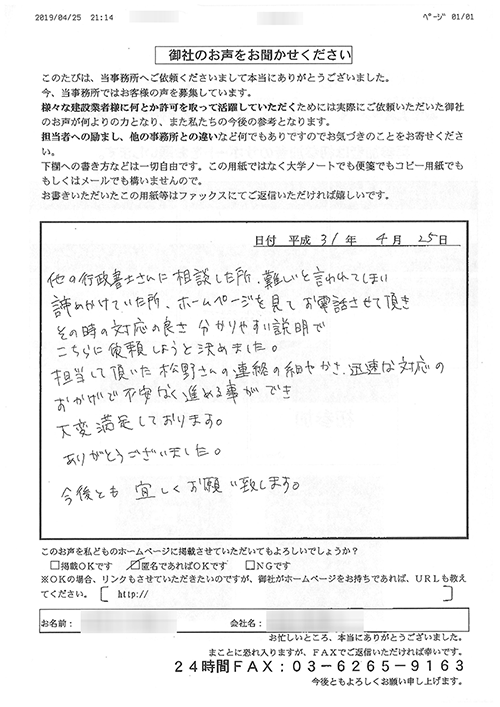 2019/04/25 21:14 ﾍﾟｰｼﾞ 01/01
御社のお声をお聞かせください
このたびは、当事務所へご依頼くださいまして本当にありがとうございました。
今、当事務所ではお客様の声を募集しています。
様々な建設業者様に何とか許可を取って活躍していただくためには実際にご依頼いただいた御社
のお声が何よりの力となり、また私たちの今後の参考となります。
担当者への励まし、他の事務所との違いなど何でもありですのでお気づきのことをお寄せくださ
い。
下欄への書き方などは一切自由です。この用紙ではなく大学ノートでも便箋でもコピー用紙でも
もしくはメールでも構いませんので。
お書きいただいたこの用紙等はファックスにてご返信いただければ嬉しいです。
日付 平成 31 年 4 月 25 日
他の行政書士さんに相談した所、難しいと言われてしまい
諦めかけていた所、ホームページを見てお電話させて頂き
その時の対応の良さ 分かりやすい説明で
こちらに依頼しようと決めました。
担当して頂いた松野さんの連絡の細やかさ、迅速な対応の
おかげで不安なく進める事ができ
大変満足しております。
ありがとうございました。
今後とも 宜しくお願い致します。
このお声を私どものホームページに掲載させていただいてもよろしいでしょうか？
□掲載OKです ☑匿名であればOKです □NGです
※OKの場合、リンクもさせていただきたいのですが、御社がホームページをお持ちであれば、URLも教え
てください。 [ http:// ]
お名前： 会社名：
お忙しいところ、本当にありがとうございました。
まことに恐れ入りますが、FAXでご返信いただければ幸いです。
24時間FAX：03-6265-9163
今後ともよろしくお願い申し上げます。